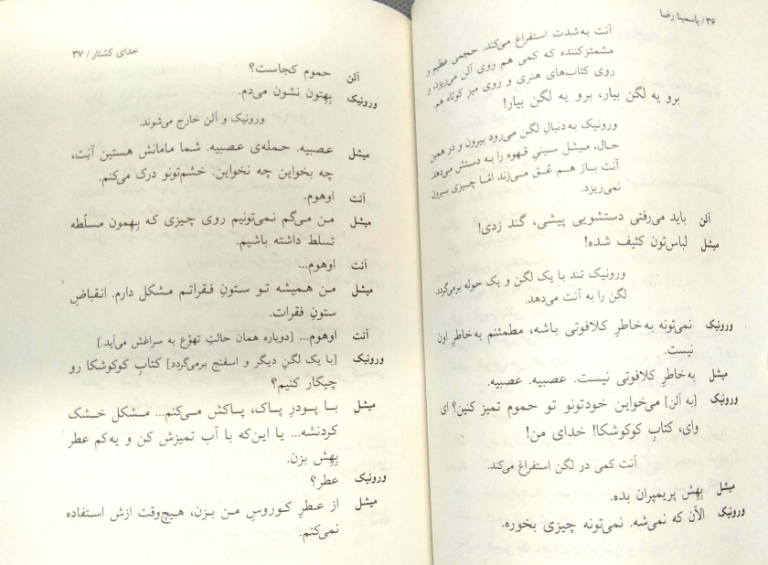 ۳۶/ یاسمینا رضا
آنت به‌شدت استفراغ می‌کند. حجمی عظیم و
مشمئزکننده که کمی هم روی آلن می‌ریزد، و
روی کتاب‌های هنری و روی میز کوتاه هم.
برو یه لگن بیار، برو یه لگن بیار!
ورونیک به‌دنبال لگن می‌رود بیرون و در همین
حال، میشل سینیِ قهوه را به دستش می‌دهد.
آنت باز هم عُق می‌زند امّا چیزی بیرون
نمی‌ریزد.
آلن باید می‌رفتی دستشویی پیشی، گند زدی!
میشل لباس‌تون کثیف شده!
ورونیک تند با یک لگن و یک حوله برمی‌گردد.
لگن را به آنت می‌دهد.
ورونیک نمی‌تونه به‌خاطرِ کلافوتی باشه، مطمئنم به‌خاطرِ اون
نیست.
میشل به‌خاطرِ کلافوتی نیست. عصبیه. عصبیه.
ورونیک [به آلن] می‌خواین خودتونو تو حموم تمیز کنین؟ ای
وای، کتابِ کوکوشکا! خدای من!
آنت کمی در لگن استفراغ می‌کند.
میشل بِهِش پریمپران بده.
ورونیک الآن که نمی‌شه. نمی‌تونه چیزی بخوره.
خدای کشتار / ۳۷
آلن حموم کجاست؟
ورونیک بِهِتون نشون می‌دم.
ورونیک و آلن خارج می‌شوند.
میشل عصبیه. حمله‌ی عصبیه. شما مامانش هستین آنِت،
چه بخواین چه نخواین. خشم‌تونو درک می‌کنم.
آنت اوهوم.
میشل من می‌گم نمی‌تونیم روی چیزی که بِهِمون مسلّطه
تسلط داشته باشیم.
آنت اوهوم...
میشل من همیشه تو ستونِ فقراتم مشکل دارم. انقباضِ
ستونِ فقرات.
آنت اوهوم... [دوباره همان حالتِ تهوّع به سراغش می‌آید.]
ورونیک [با یک لگنِ دیگر و اسفنج برمی‌گردد] کتابِ کوکوشکا رو
چیکار کنیم؟
میشل با پودرِ پاک، پاکش می‌کنم... مشکل خشک
کردنشه... یا این‌که با آب تمیزش کن و یه‌کم عطر
بِهِش بزن.
ورونیک عطر؟
میشل از عَطرِ کوروسِ من بزن، هیچ‌وقت ازش استفاده
نمی‌کنم.